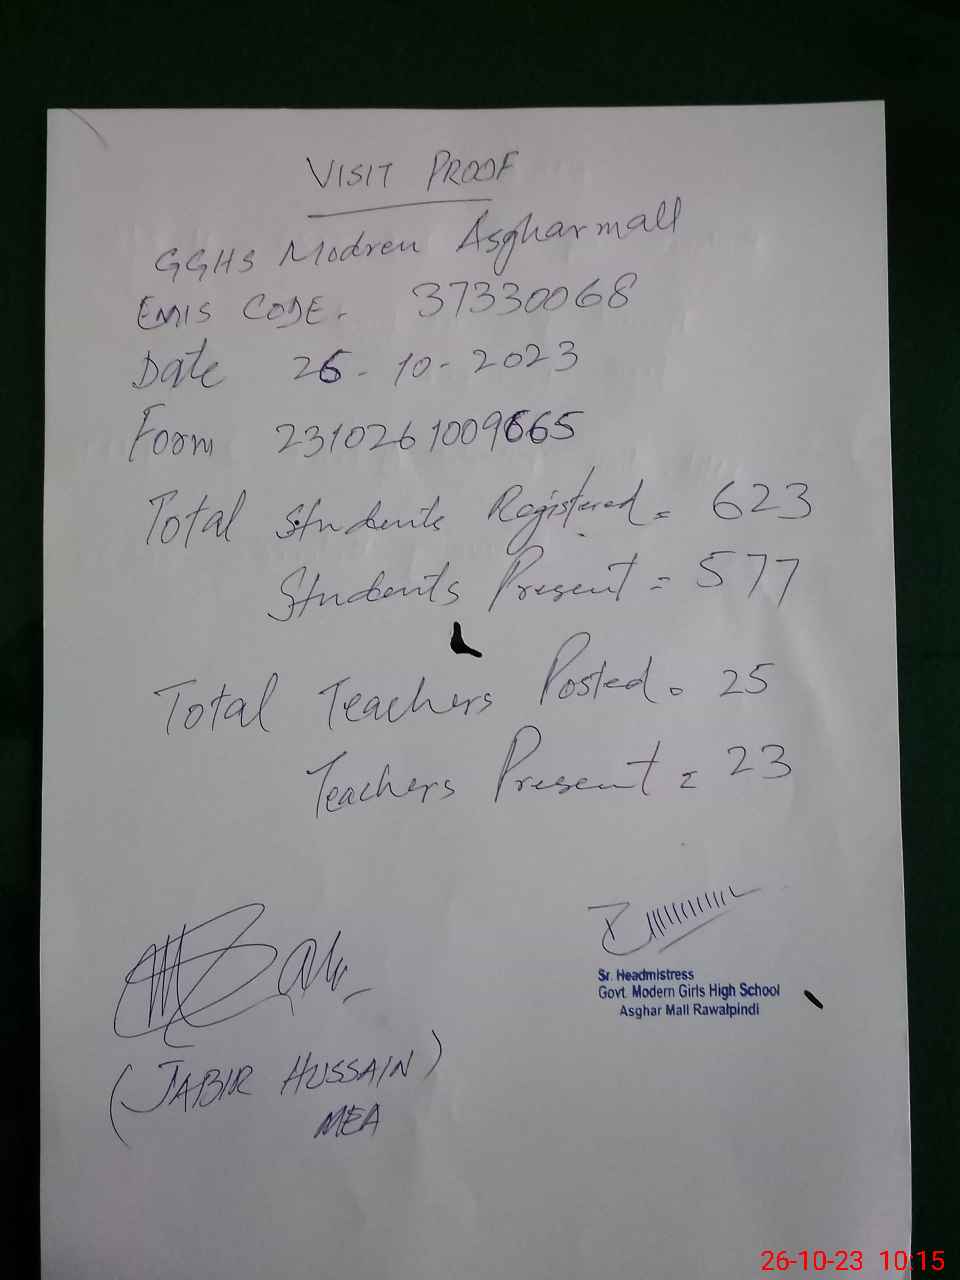 VISIT PROOF
GGHS Modren Asgharmall
EMIS CODE. 37330068
Date 26-10-2023
Form 2310261009665
Total Students Registered = 623
Students Present = 577
Total Teachers Posted = 25
Teachers Present = 23
Sr. Headmistress
Govt. Modern Girls High School
Asghar Mall Rawalpindi
(JABIR HUSSAIN)
MEA
26-10-23 10:15